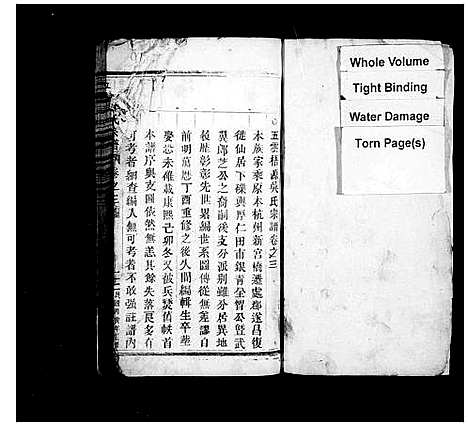 五雲梧源吳氏宗譜卷之三
本族家乘原本杭州新宮橋遷處郡遂昌復
徙仙居下礫與厚仁田市銀青全智公暨武
翼郎芝公之裔嗣後支分派別雖分居異地
義歷彰彰先世累編世系圖傳從無差謬自
前明萬厯丁酉重修之後久間編輯生卒塋
娶恐未備載康熙己卯冬又被兵燹舊帙首
本譜序與支圖依然無恙其餘失落良多有
可考者細查編入無可考者不敢強註譜內
Whole Volume
Tight Binding
Water Damage
Torn Page(s)